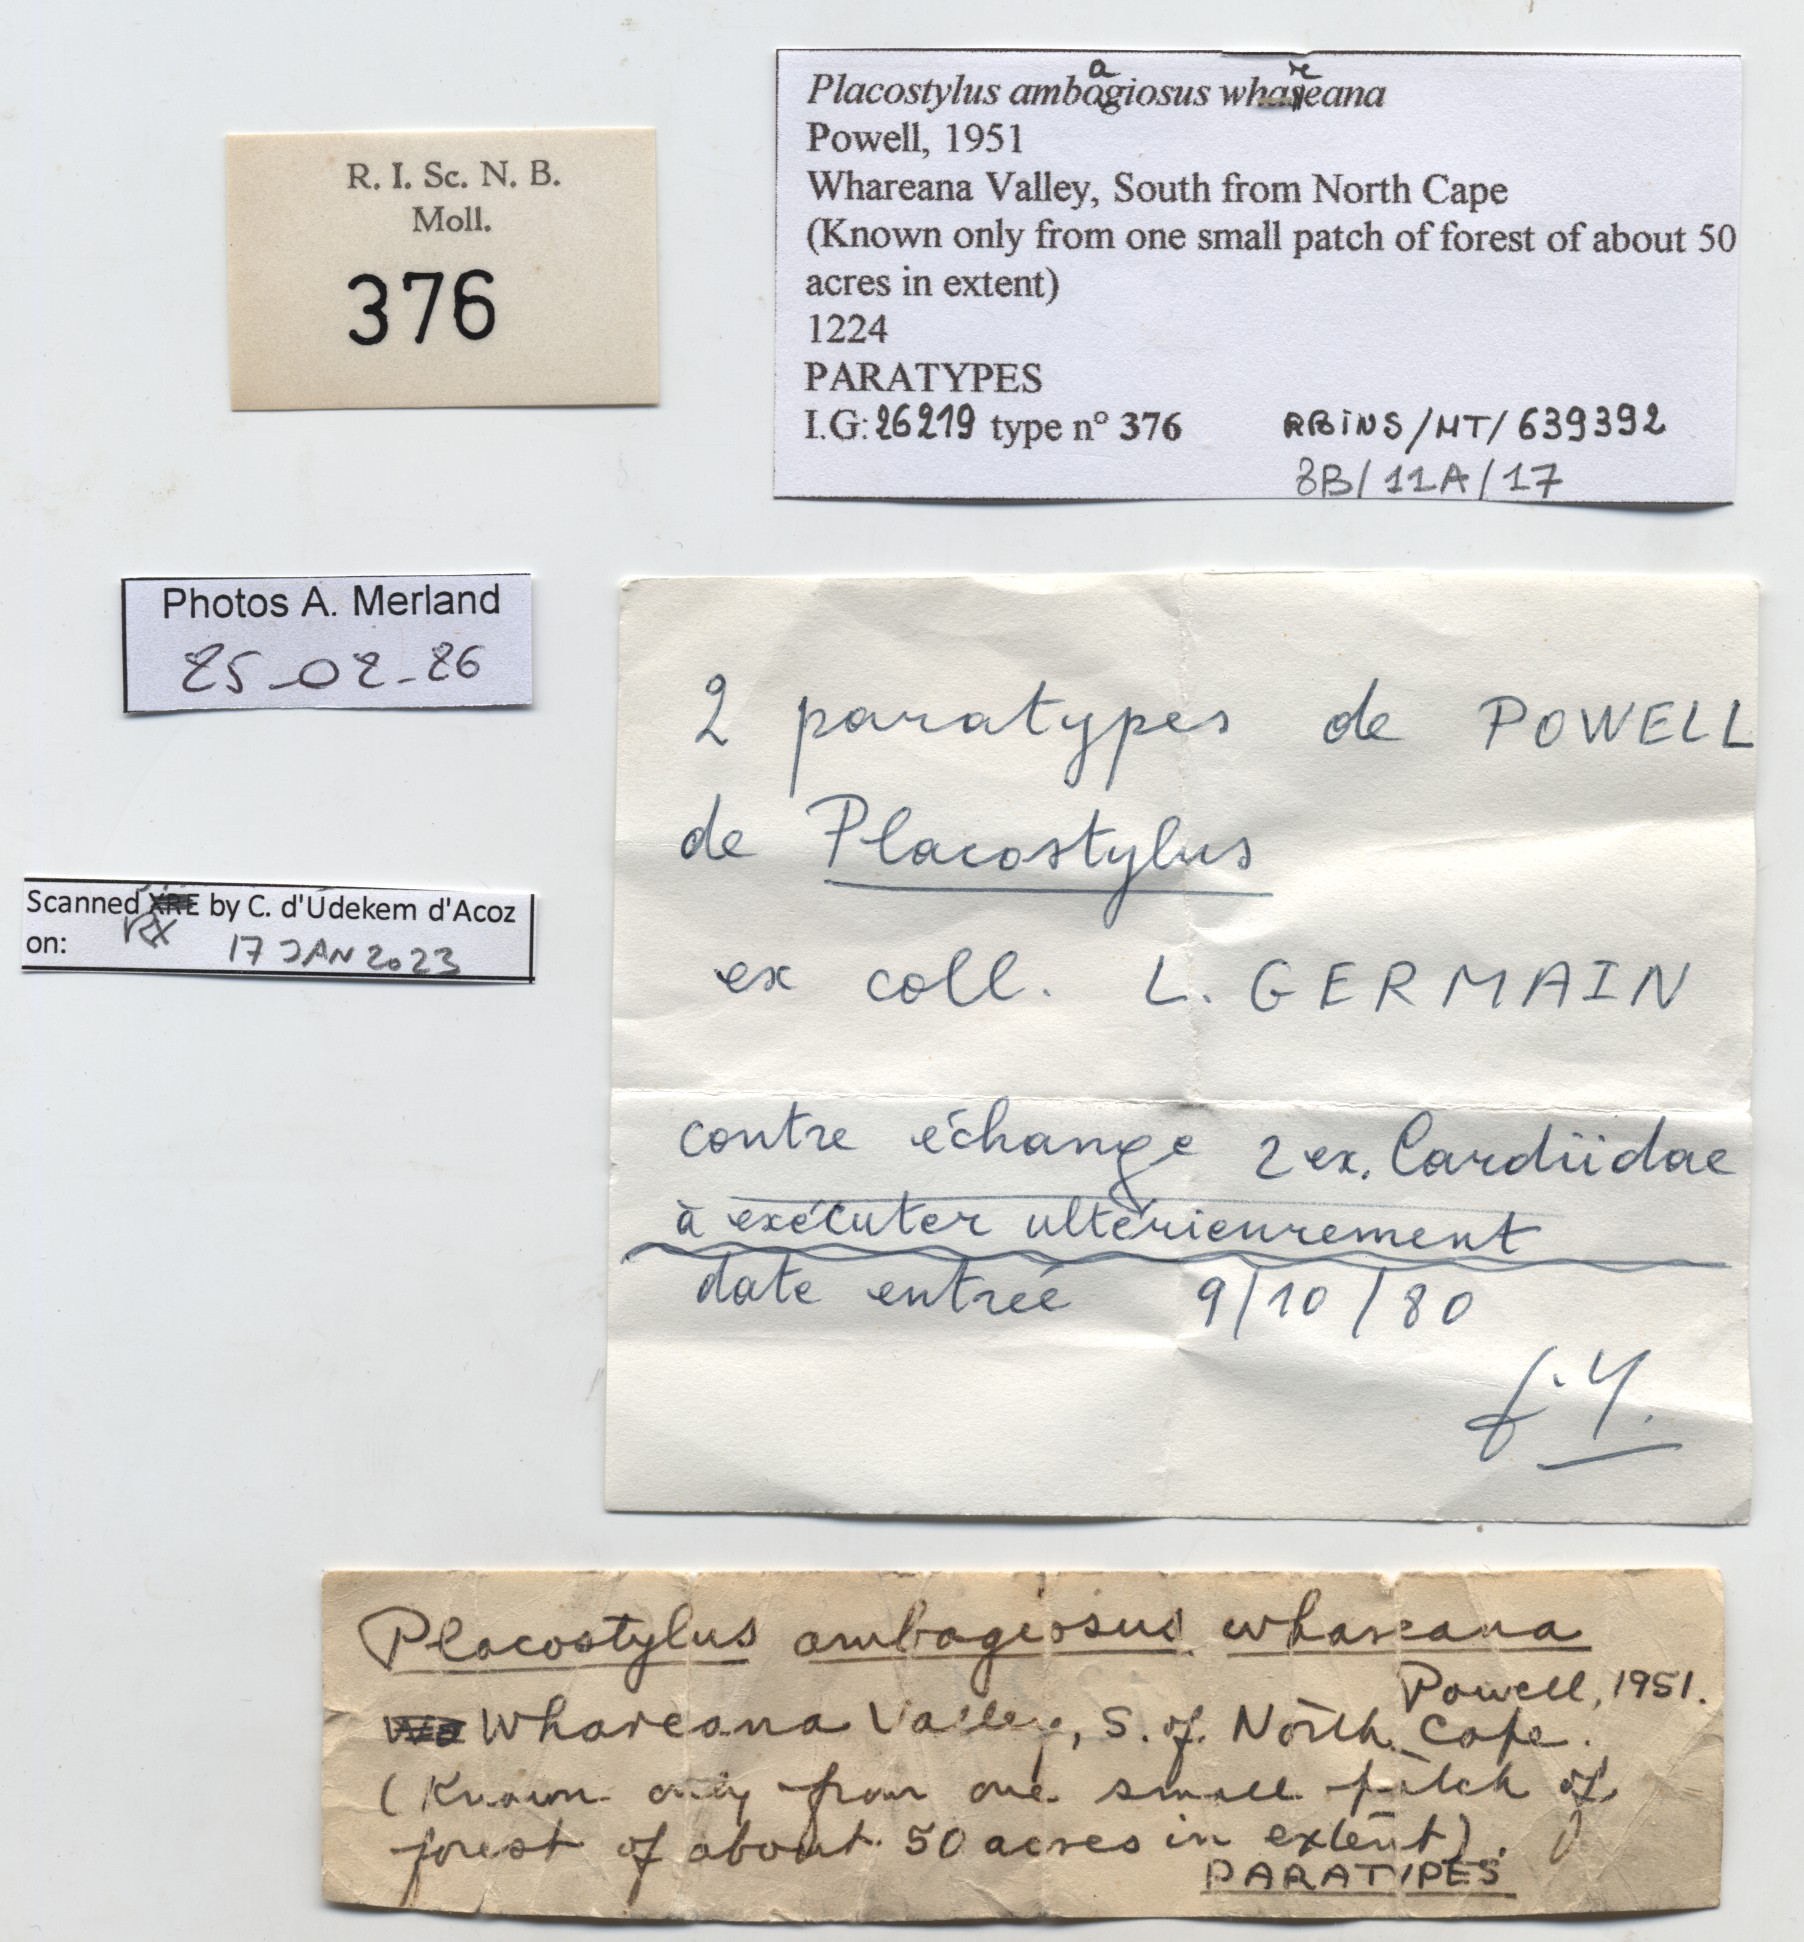 R. I. Sc. N. B.
Moll.
376
Placostylus ambagiosus whareana
Powell, 1951
Whareana Valley, South from North Cape
(Known only from one small patch of forest of about 50
acres in extent)
1224
PARATYPES
I.G: 26219 type n° 376 RBINS/MT/639392
8B/11A/17
Photos A. Merland
25-02-26
Scanned by C. d'Udekem d'Acoz
RX
on: 17 JAN 2023
2 paratypes de POWELL
de Placostylus
ex coll. L. GERMAIN
contre échange 2 ex. Cardiidae
à exécuter ultérieurement
date entrée 9/10/80
Placostylus ambagiosus whareana
Powell, 1951.
Whareana Valley, S. of North Cape.
(Known only from one small patch of
forest of about 50 acres in extent).
PARATYPES